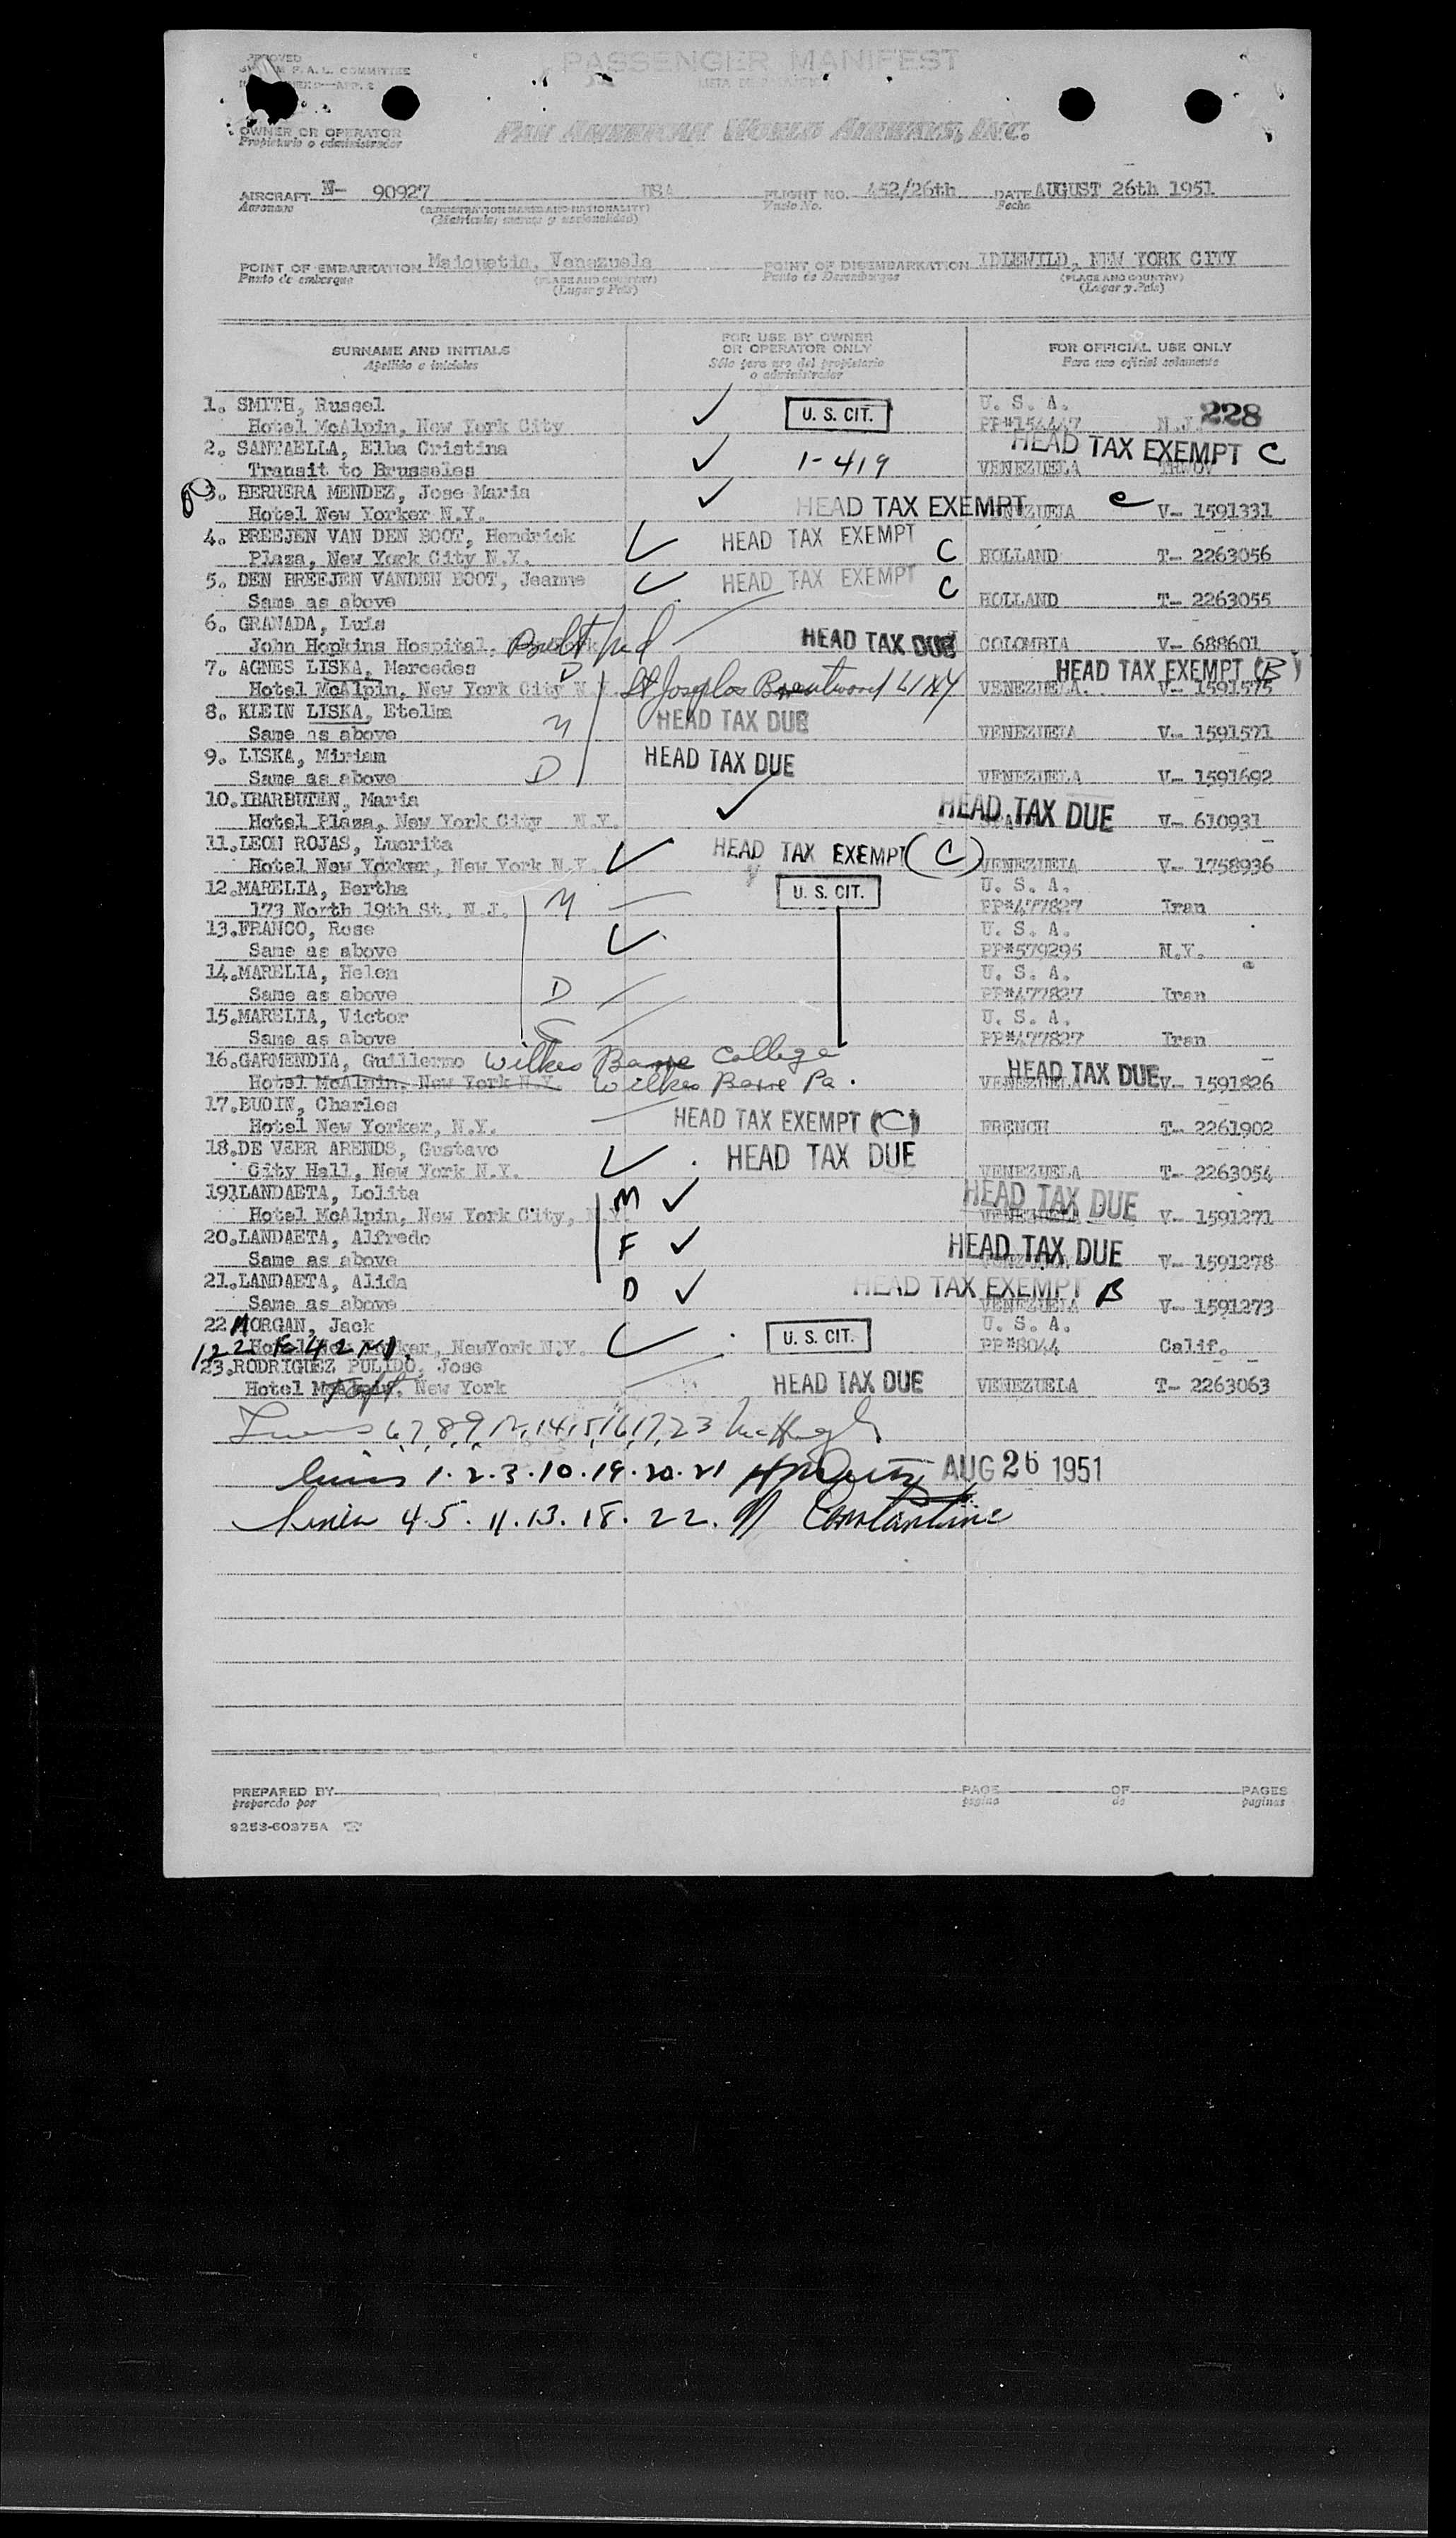 PASSENGER MANIFEST
P. A. L. COMMITTEE
OWNER OR OPERATOR
Propietario o administrador
PAN AMERICAN WORLD AIRWAYS, INC.
AIRCRAFT N- 90927 USA FLIGHT NO. 452/26th DATE AUGUST 26th 1951
Aeronave (REGISTRATION MARKS AND NATIONALITY) Vuelo No. Fecha
(Matricula, marcas y nacionalidad)
POINT OF EMBARKATION Maiquetia, Venezuela POINT OF DISEMBARKATION IDLEWILD, NEW YORK CITY
Punto de embarque (PLACE AND COUNTRY) Punto de Desembarque (PLACE AND COUNTRY)
(Lugar y País) (Lugar y País)
SURNAME AND INITIALS FOR USE BY OWNER OR OPERATOR ONLY FOR OFFICIAL USE ONLY
Apellido e iniciales Sólo para uso del propietario o administrador Para uso oficial solamente
1. SMITH, Russel U. S. CIT. U. S. A. 228
Hotel McAlpin, New York City PP#154447 N.J.
2. SANTAELLA, Elba Cristina HEAD TAX EXEMPT C
Transit to Brusseles 1-419 VENEZUELA
3. HERRERA MENDEZ, Jose Maria HEAD TAX EXEMPT C
Hotel New Yorker N.Y. VENEZUELA V- 1591331
4. BREEJEN VAN DEN BOOT, Hendrick HEAD TAX EXEMPT C
Plaza, New York City N.Y. HOLLAND T- 2263056
5. DEN BREEJEN VANDEN BOOT, Jeanne HEAD TAX EXEMPT C
Same as above HOLLAND T- 2263055
6. GRANADA, Luis HEAD TAX DUE
John Hopkins Hospital, Balt Md COLOMBIA V- 688601
7. AGNES LISKA, Mercedes D HEAD TAX EXEMPT (B)
Hotel McAlpin, New York City N.Y. St Josephs Brentwood LI NY VENEZUELA. V- 1591575
8. KLEIN LISKA, Etelka M HEAD TAX DUE
Same as above VENEZUELA V- 1591571
9. LISKA, Miriam D HEAD TAX DUE
Same as above VENEZUELA V- 1591692
10. IBARBUTEN, Maria HEAD TAX DUE
Hotel Plaza, New York City N.Y. V- 610931
11. LEON ROJAS, Lucrita HEAD TAX EXEMPT (C)
Hotel New Yorker, New York N.Y. VENEZUELA V- 1758936
12. MARELIA, Bertha M U. S. CIT. U. S. A.
173 North 19th St. N.J. PP#477827 Iran
13. FRANCO, Rose U. S. A.
Same as above PP#579295 N.Y.
14. MARELIA, Helen D U. S. A.
Same as above PP#477827 Iran
15. MARELIA, Victor S U. S. A.
Same as above PP#477827 Iran
16. GARMENDIA, Guillermo Wilkes Barre College HEAD TAX DUE
Hotel McAlpin, New York N.Y. Wilkes Barre Pa. VENEZUELA V- 1591826
17. BUDIN, Charles HEAD TAX EXEMPT (C)
Hotel New Yorker, N.Y. FRENCH T- 2261902
18. DE VEER ARENDS, Gustavo HEAD TAX DUE
City Hall, New York N.Y. VENEZUELA T- 2263054
19. LANDAETA, Lolita M HEAD TAX DUE
Hotel McAlpin, New York City, N.Y. VENEZUELA V- 1591271
20. LANDAETA, Alfredo F HEAD TAX DUE
Same as above V- 1591278
21. LANDAETA, Alida D HEAD TAX EXEMPT B
Same as above VENEZUELA V- 1591273
22. MORGAN, Jack U. S. CIT. U. S. A.
122 E 42 Hotel New Yorker, NewYork N.Y. PP#8044 Calif.
23. RODRIGUEZ PULIDO, Jose HEAD TAX DUE
Hotel Taft, New York VENEZUELA T- 2263063
Lines 6,7,8,9,12,14,15,16,17,23 McHugh
Lines 1.2.3.10.19.20.21 AUG 26 1951
Lines 4.5.11.13.18.22. Constantine
PREPARED BY PAGE OF PAGES
preparado por pagina de paginas
9253-60375A